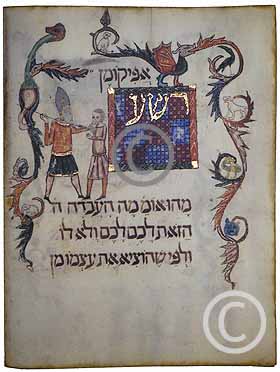 אפיקומן
רשע
מהואומ מה העבדה ה
הזאת לכם לכם ולא לו
ולפי שהוציא את עצמו מן
©
©